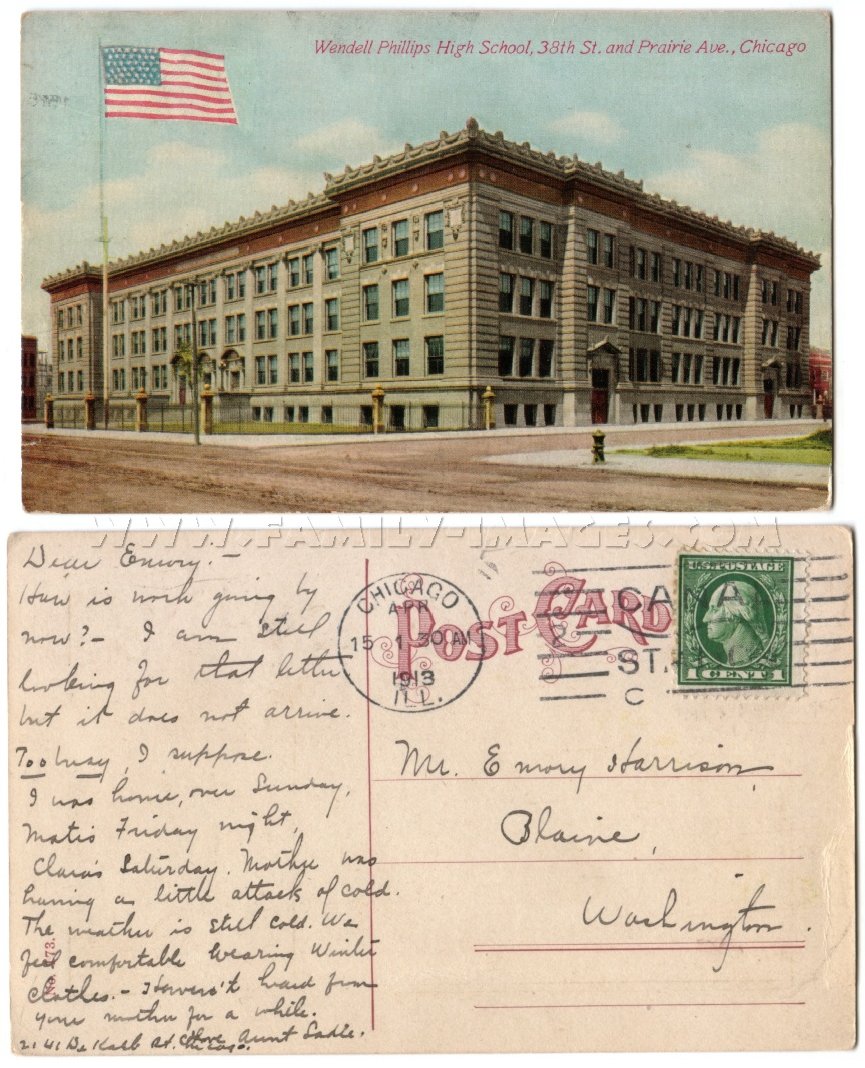 Wendell Phillips High School, 38th St. and Prairie Ave., Chicago
WWW.FAMILY-IMAGES.COM
Dear Emory. –
How is work going by
now? – I am still
looking for that letter
but it does not arrive.
Too busy, I suppose.
I was home, over Sunday,
Matis Friday night,
Clara's Saturday. Mother was
having a little attack of cold.
The weather is still cold. We
feel comfortable wearing Winter
clothes. – Haven't heard from
your mother for a while.
Love Aunt Sadie.
2141 De Kalb St. Chicago.
No. 173.
POST CARD
CHICAGO
APR
15 1 30 AM
1913
ILL.
CANAL
ST.
C
U.S. POSTAGE
1 CENT 1
Mr. Emory Harrison,
Blaine,
Washington.